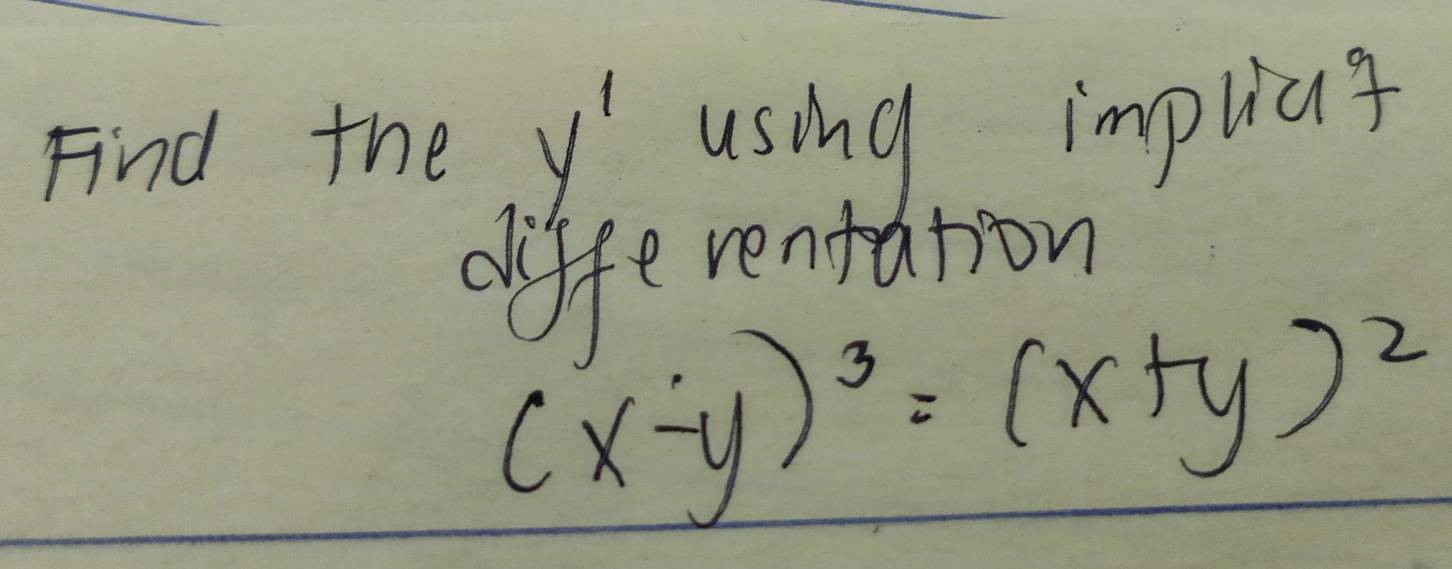 Find the y' using implicit
differentation
(x-y)³ = (x+y)²